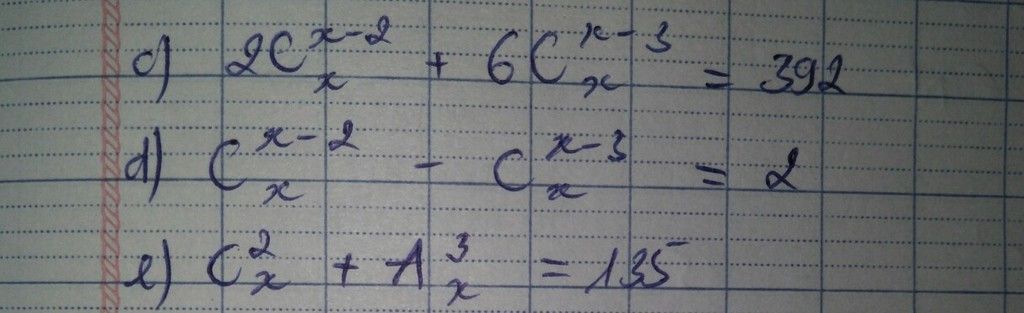 c) 2C_x^{x-2} + 6C_x^{x-3} = 392
d) C_x^{x-2} - C_x^{x-3} = 2
e) C_x^2 + A_x^3 = 135